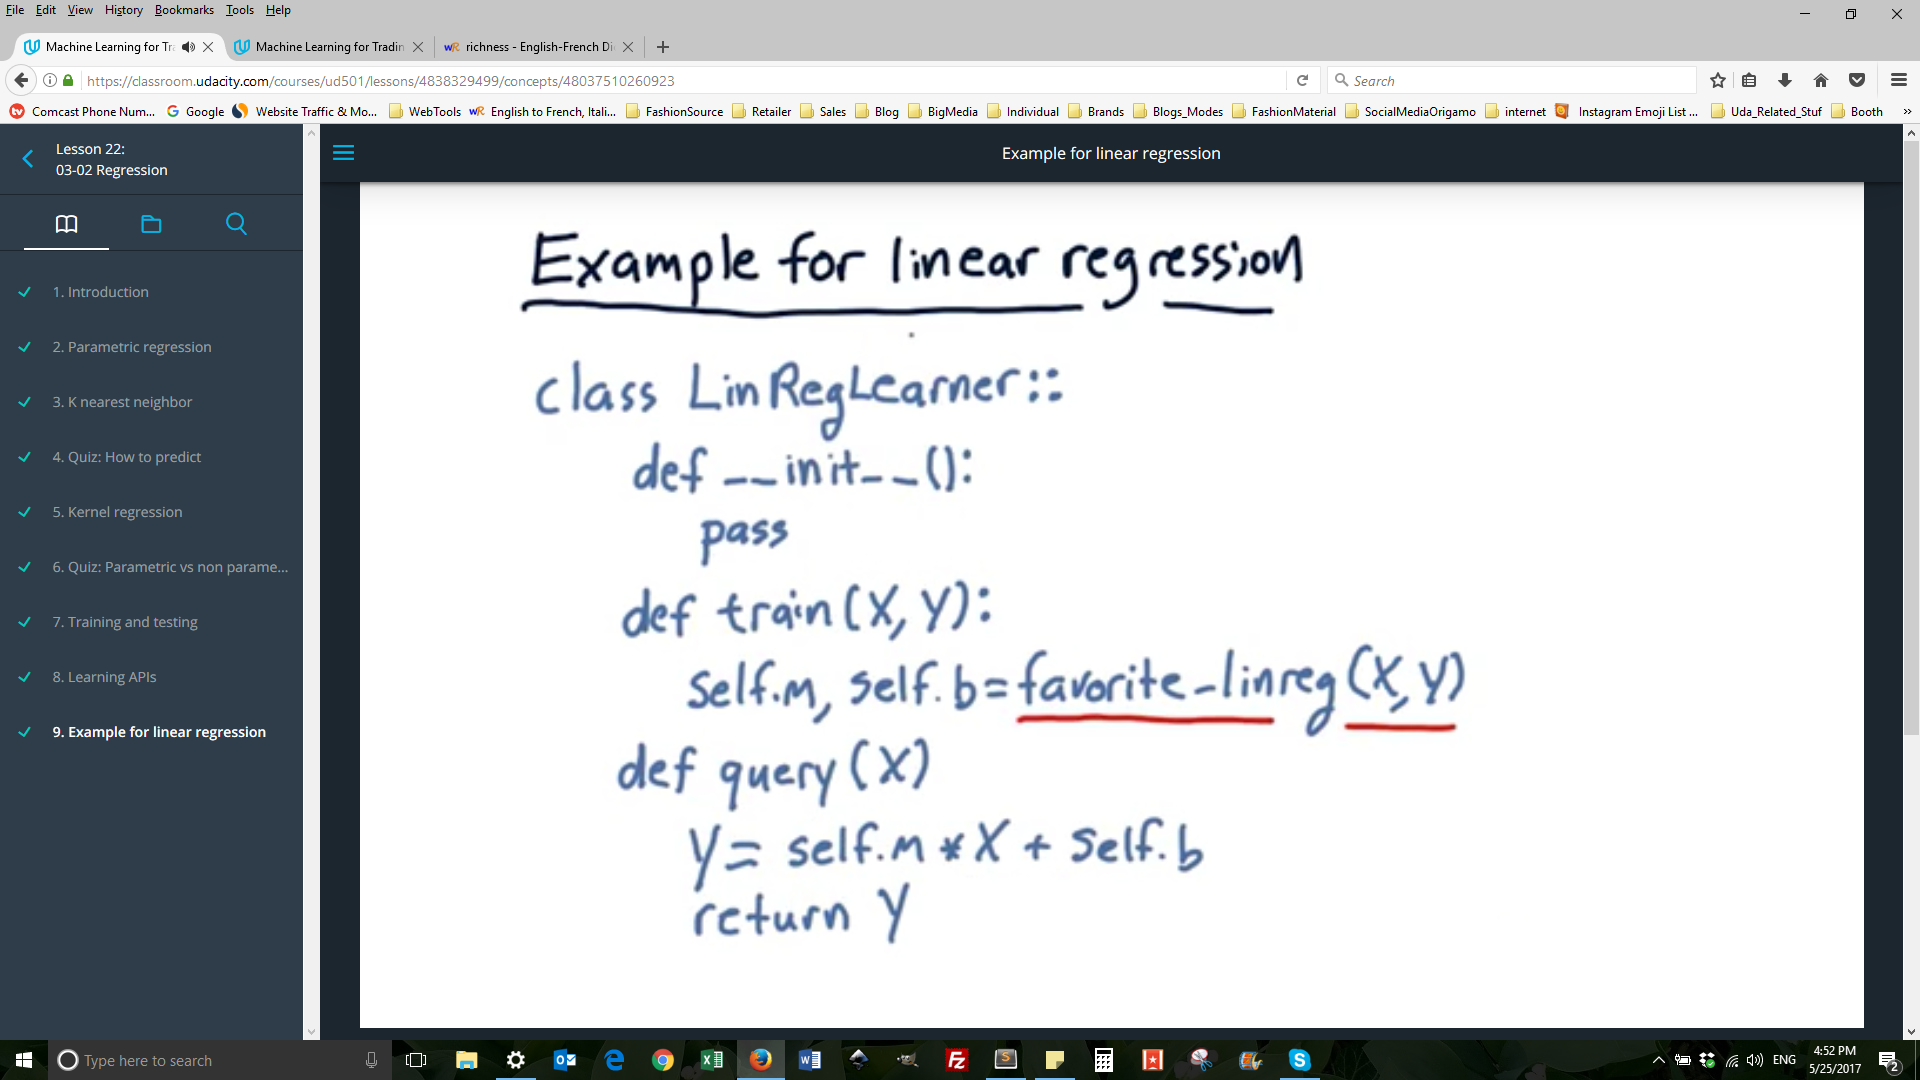 File Edit View History Bookmarks Tools Help
Machine Learning for Tr
Machine Learning for Tradin
wR richness - English-French Di
https://classroom.udacity.com/courses/ud501/lessons/4838329499/concepts/48037510260923
Search
Comcast Phone Num... Google Website Traffic & Mo... WebTools wR English to French, Itali... FashionSource Retailer Sales Blog BigMedia Individual Brands Blogs_Modes FashionMaterial SocialMediaOrigamo internet Instagram Emoji List ... Uda_Related_Stuf Booth »
Lesson 22:
03-02 Regression
Example for linear regression
1. Introduction
2. Parametric regression
3. K nearest neighbor
4. Quiz: How to predict
5. Kernel regression
6. Quiz: Parametric vs non parame...
7. Training and testing
8. Learning APIs
9. Example for linear regression
Example for linear regression
class LinRegLearner::
def __init__():
pass
def train(X, Y):
self.m, self.b = favorite_linreg(X, Y)
def query(X)
Y = self.m * X + self.b
return Y
Type here to search
ENG
4:52 PM
5/25/2017
2